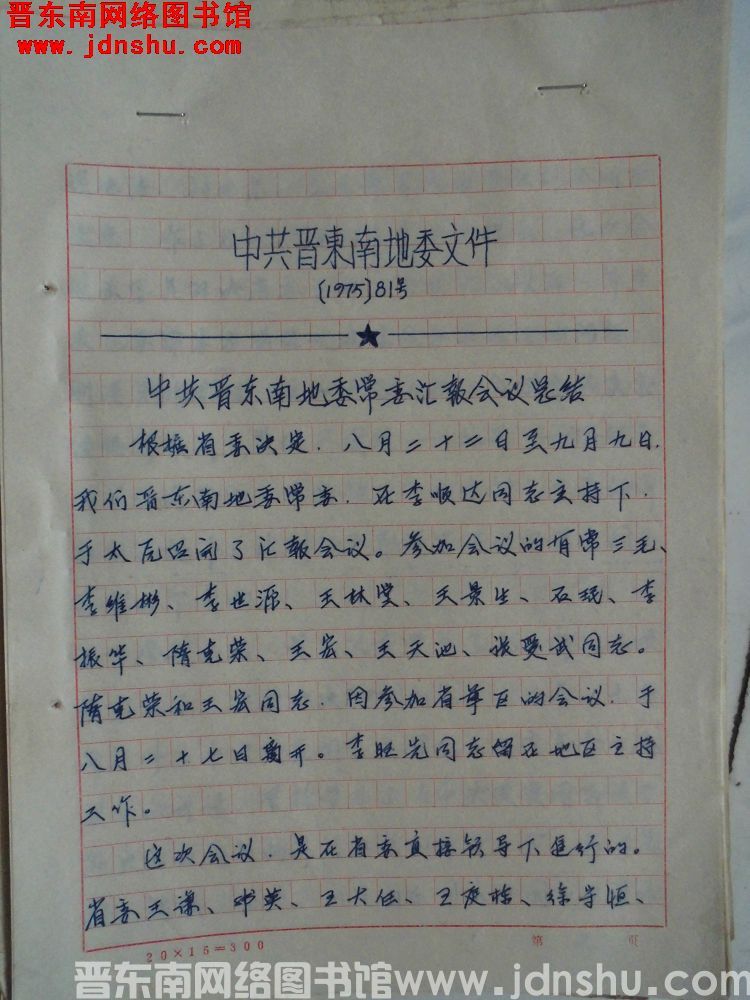 晋东南网络图书馆
www.jdnshu.com
中共晋東南地委文件
〔1975〕81号
中共晋东南地委常委汇报会议总结
根据省委决定,八月二十二日至九月九日,
我们晋东南地委常委,在李顺达同志主持下,
于太原召开了汇报会议。参加会议的有常三毛、
李维彬、李世源、王林堂、王景生、石珉、李
振华、隋克荣、王宏、王天池、张爱武同志。
隋克荣和王宏同志,因参加省军区的会议,于
八月二十七日离开。李旺先同志留在地区主持
工作。
这次会议,是在省委直接领导下进行的。
省委王谦、邓英、王大任、王庭栋、徐守恒、
20×15=300
第 页
晋东南网络图书馆www.jdnshu.com